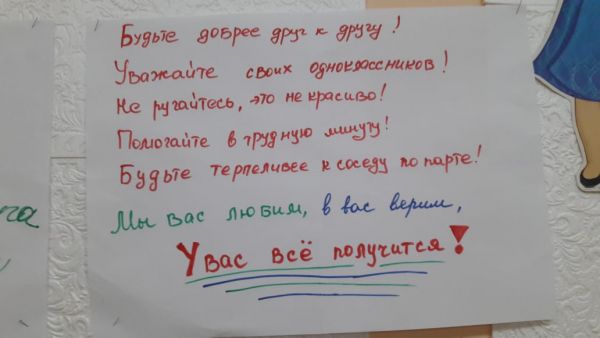 Будьте добрее друг к другу!
Уважайте своих одноклассников!
Не ругайтесь, это не красиво!
Помогайте в трудную минуту!
Будьте терпеливее к соседу по парте!
Мы вас любим, в вас верим,
У вас всё получится!